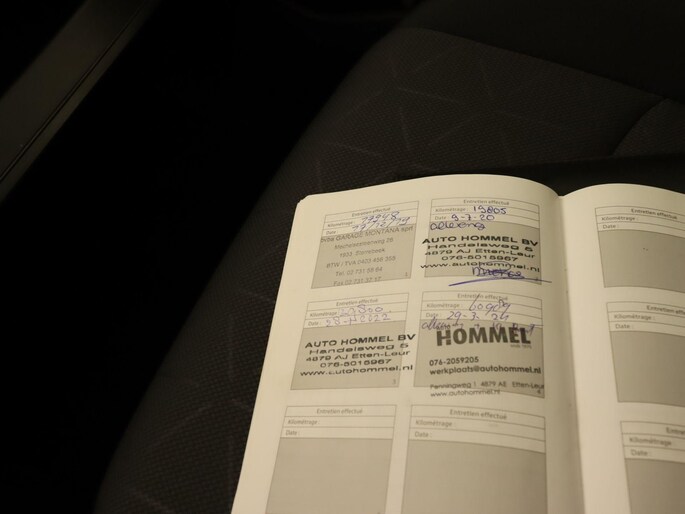 Entretien effectué
Kilométrage :
Date :
bvba GARAGE MONTANA sprl
1933 Sterrebeek
BTW / TVA 0423 456 399
Tel. 02 731 58 84
Fax. 02 731 52 12
Entretien effectué
Kilométrage : 19805
Date : 9-7-20
AUTO HOMMEL BV
Handelsweg 5
4879 AJ Etten-Leur
076-5015967
www.autohommel.nl
Entretien effectué
Kilométrage :
Date :
AUTO HOMMEL BV
Handelsweg 5
4879 AJ Etten-Leur
076-5015967
www.autohommel.nl
3
Entretien effectué
Kilométrage :
Date : 29-3-24
HOMMEL
076-2059205
werkplaats@autohommel.nl
Penningweg 1 4879 AE Etten-Leur
www.autohommel.nl
4
Entretien effectué
Kilométrage :
Date :
Entretien effectué
Kilométrage :
Date :
Kilométrage :
Date :
Entretien effectué
Kilométrage :
Date :
Kilométrage :
Date :